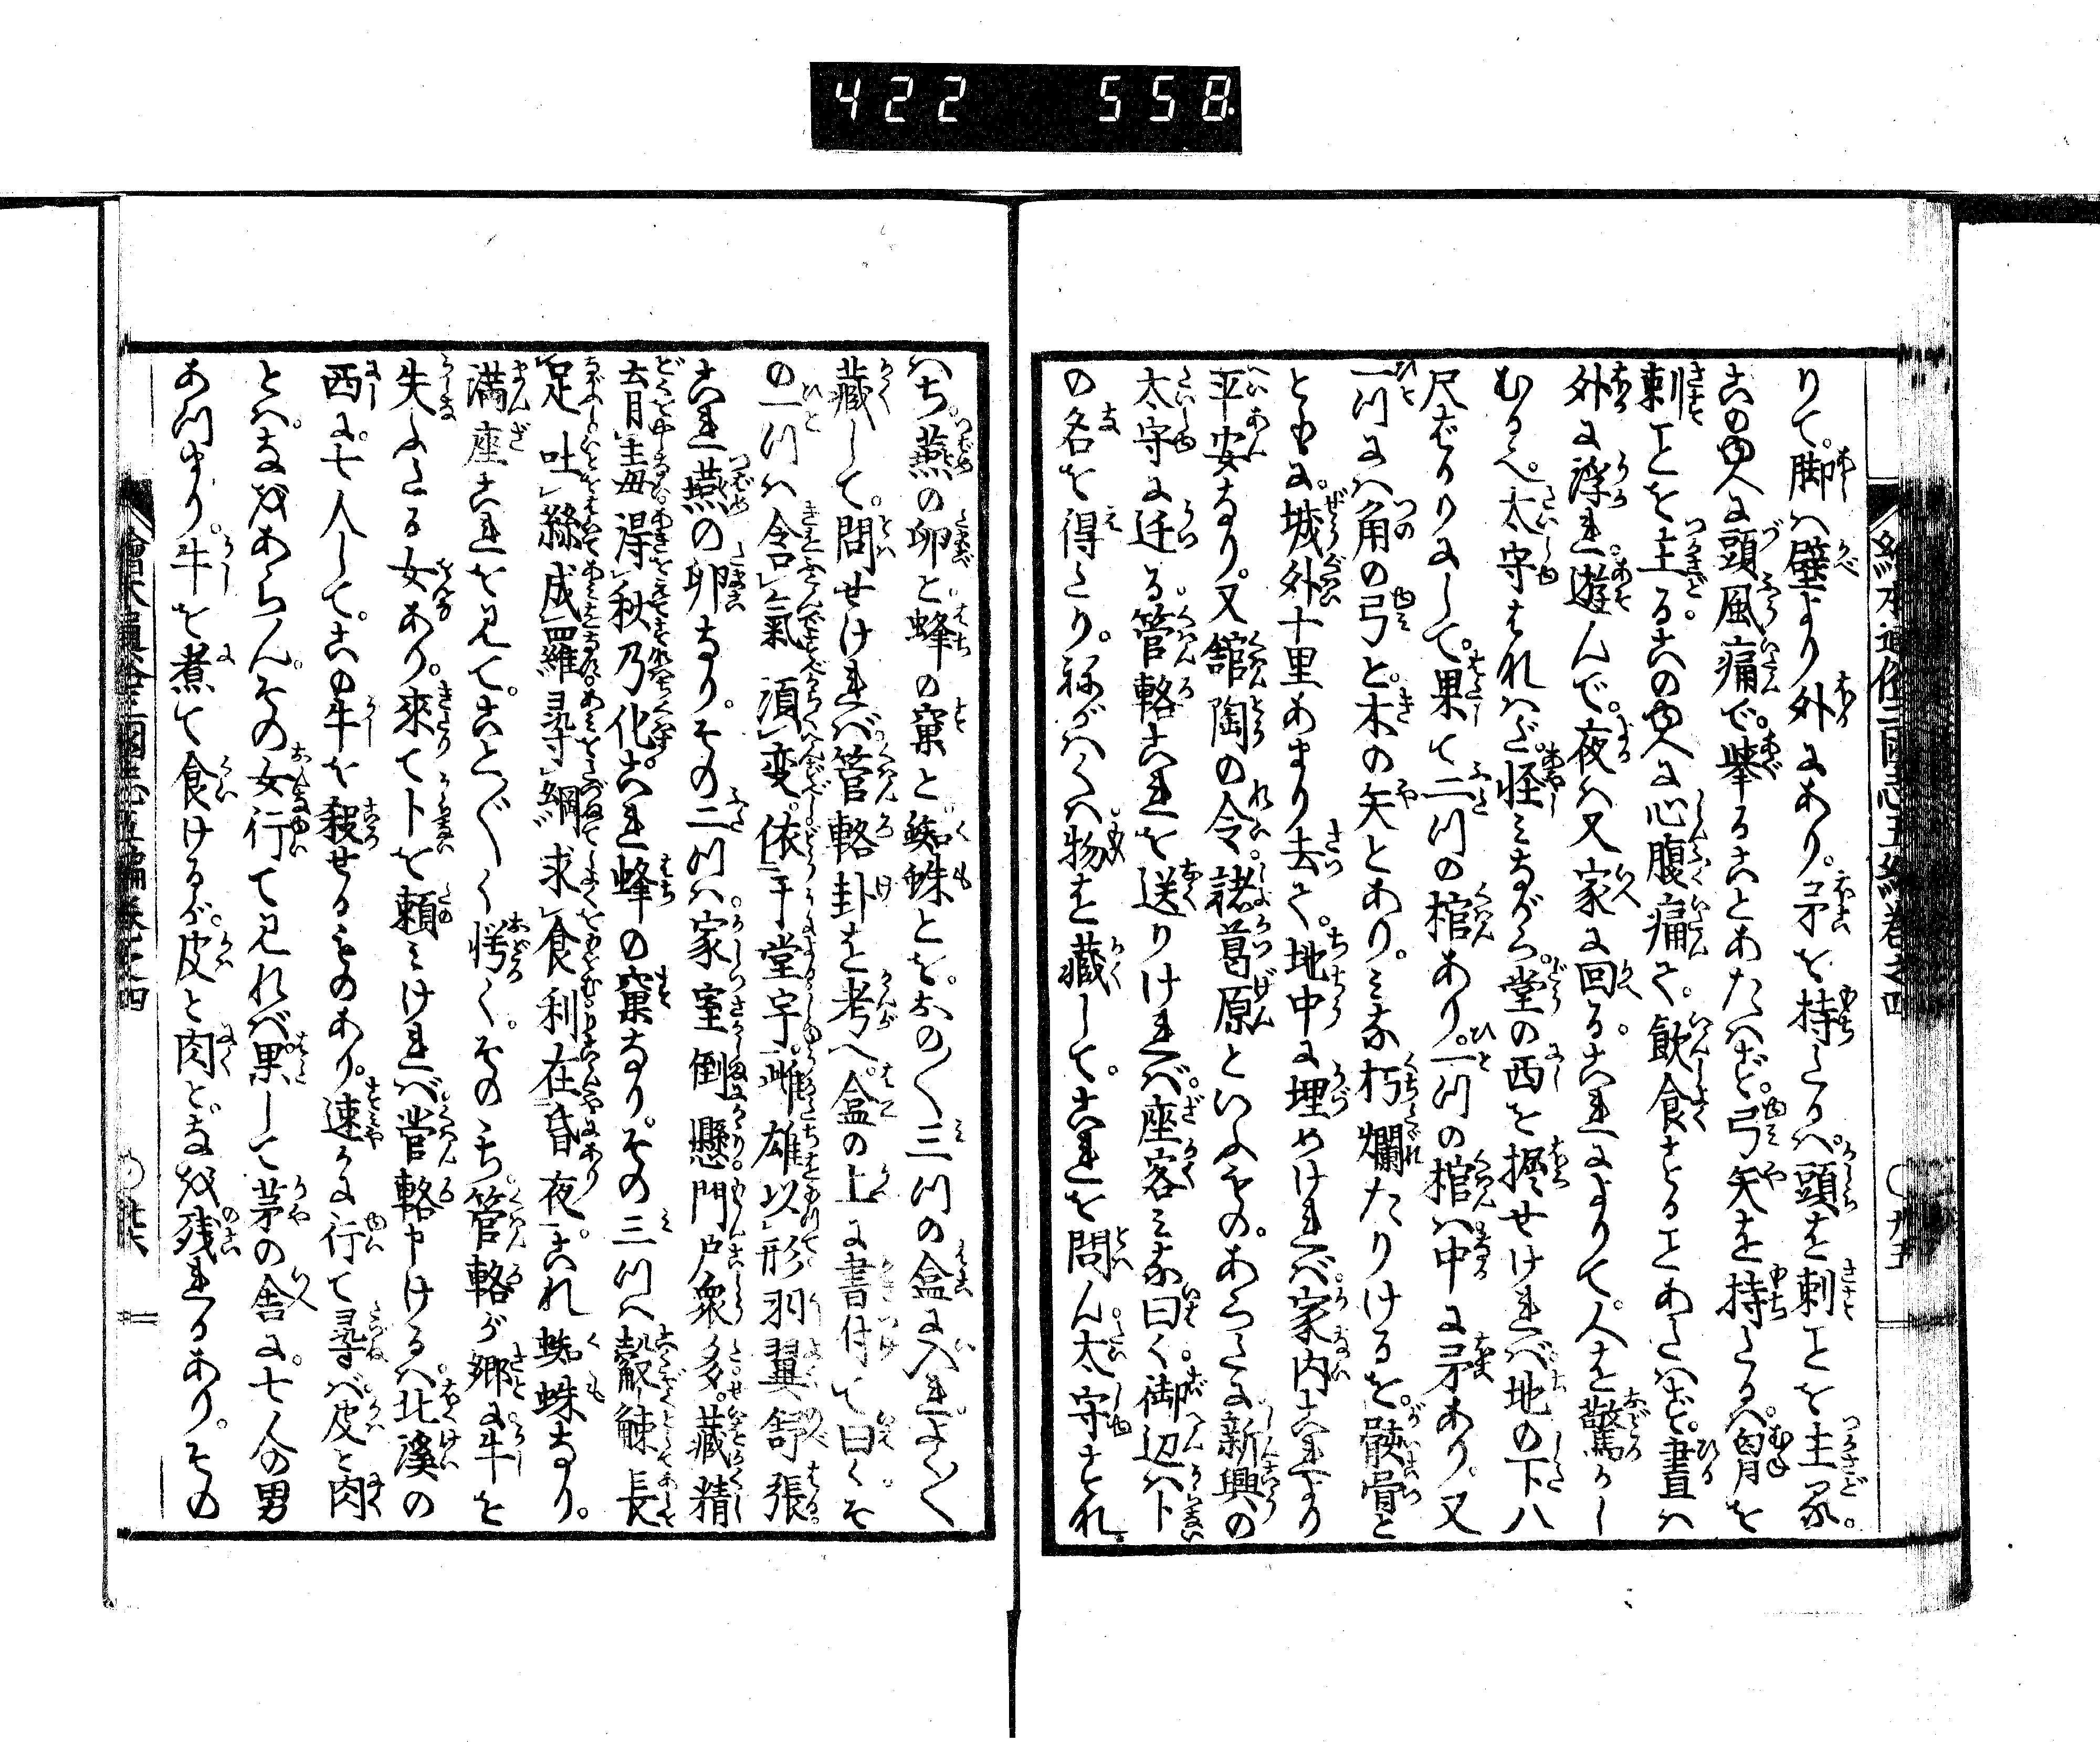 422 558
繪本通俗三國志五編卷之四 〇廿五
りて。脚ハ壁より外にあり。矛を持たるハ。頭を刺ことを主る。
この由人に頭風痛で。挙ることあたハず。弓矢を持たるハ。胸を
刺ことを主る。この由人に心腹痛て。飲食することあたハず。晝ハ
外に浮れ遊んで。夜ハ又家に回る。これによりて。人を驚かし
むるハ。太守きれハど怪ミながら。堂の西を掘せけれバ。地の下八
尺ばかりにして。果て二川の棺あり。一川の棺ハ中に矛あり。又
一川にハ角の弓と。木の矢とあり。ミな朽爛たりけるを。骸骨と
ともに。城外十里あまり去て。地中に埋めけれバ。家内これより
平安なり。又舘陶の令。諸葛原といふもの。あらたに新興の
太守に迁る。管輅これを送りけれバ。座客ミな曰く。御辺ハト
の名を得たり。称がハくハ。物を藏して。これを問ん。太守すなれ
ハち。燕の卵と蜂の窠と蜘蛛とを。おの〳〵三川の盒に入れ。よく〳〵
藏して。問せけれバ。管輅卦を考へ。盒の上に書付て曰く。そ
の一川ハ。含氣須変。依乎堂宇。雌雄以形。羽翼舒張。
これ燕の卵なり。その二川ハ。家室倒懸。門戸衆多。藏精
育毒。得秋乃化。これ蜂の窠なり。その三川ハ。觳觫長
足。吐絲成羅。尋網求食。利在昏夜。これ蜘蛛なり。
満座これを見て。こと〴〵く愕く。そのゝち。管輅が郷に牛を
失ふたる女あり。來て卜を頼ミけれバ。管輅申けるハ。北溪の
西に。七人して。この牛を殺せるものあり。速かに行て尋べ。皮と肉
とハ。なをあらん。その女行て見れバ。果して茅の舎に。七人の男
あつまり。牛を煮て食けるが。皮と肉とハ。なを残れるあり。その
繪本通俗三國志五編卷之四 〇廿六